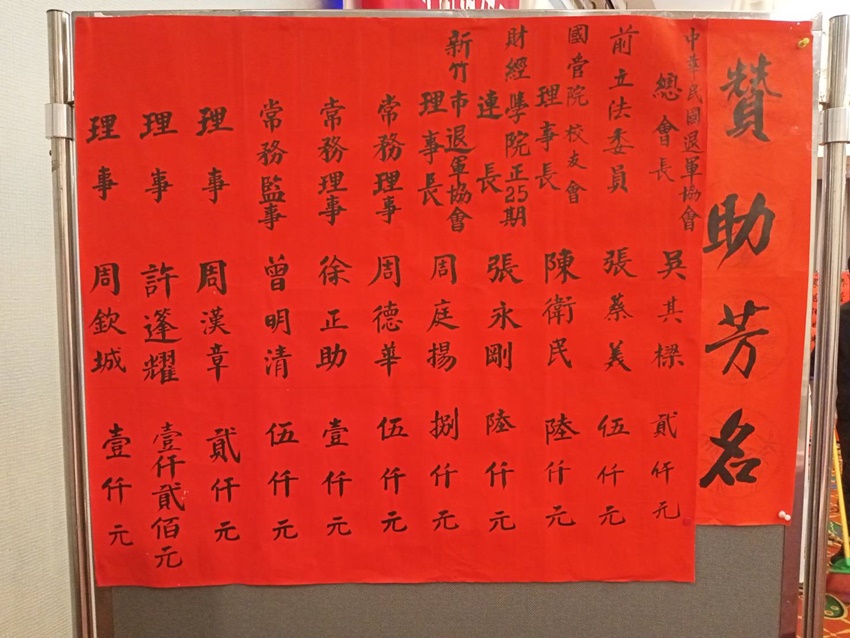 贊助芳名
中華民國退軍協會
總會長 吳其樑 貳仟元
前立法委員 張蔡美 伍仟元
國管院校友會
理事長 陳衛民 陸仟元
財經學院正25期
連長 張永剛 陸仟元
新竹市退軍協會
理事長 周庭揚 捌仟元
常務理事 周德華 伍仟元
常務理事 徐正助 壹仟元
常務監事 曾明清 伍仟元
理事 周漢章 貳仟元
理事 許蓬耀 壹仟貳佰元
理事 周欽城 壹仟元